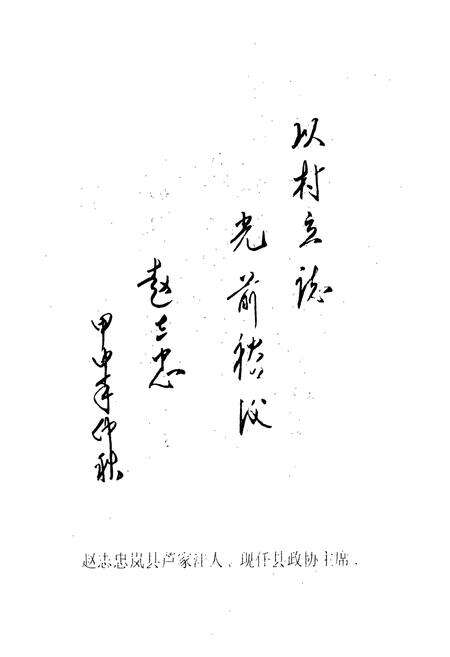 以村立誌
光前裕後
赵志忠
甲申年仲秋
赵志忠岚县芦家汪人，现任县政协主席．